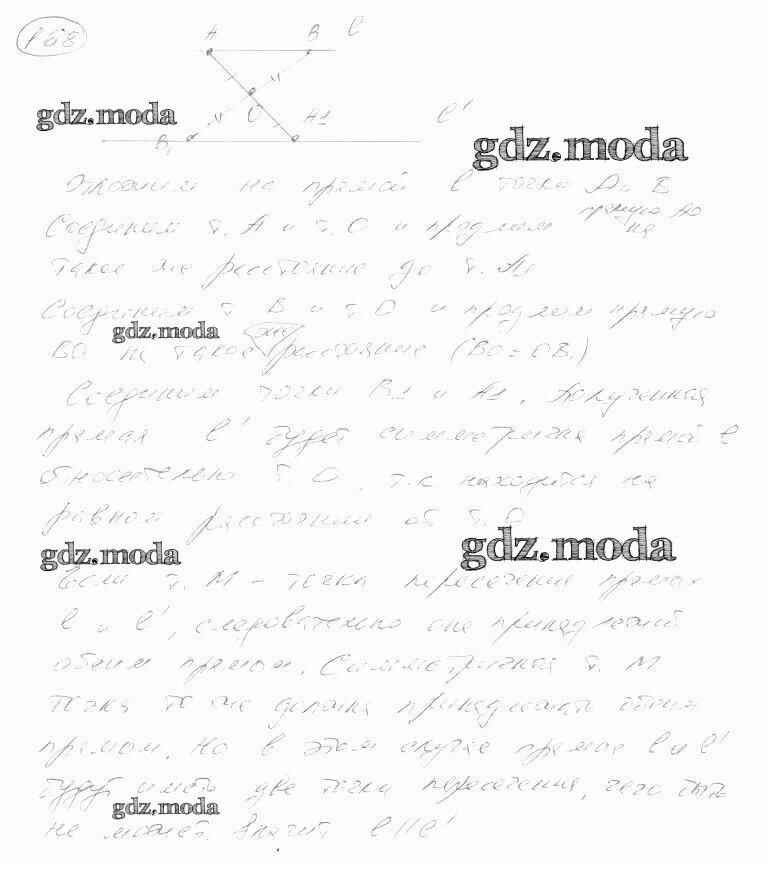 168
A B l
O A1 l'
B1
gdz.moda gdz.moda
Отложим на прямой l точки A и B
Соединим т. A и т. O и продлим прямую AO на
такое же расстояние до т. A1
Соединим т. B и т. O и продлим прямую
gdz.moda
BO на такое же расстояние (BO = OB1)
Соединим точки B1 и A1. Полученная
прямая l' будет симметрична прямой l
относительно т. O, т.к. находится на
равном расстоянии от т. O
gdz.moda gdz.moda
Если т. M - точка пересечения прямых
l и l', следовательно она принадлежит
обеим прямым. Симметричная т. M
точка то же должна принадлежать обеим
прямым. Но в этом случае прямые l и l'
будут иметь две точки пересечения, чего быть
gdz.moda
не может. Значит l || l'